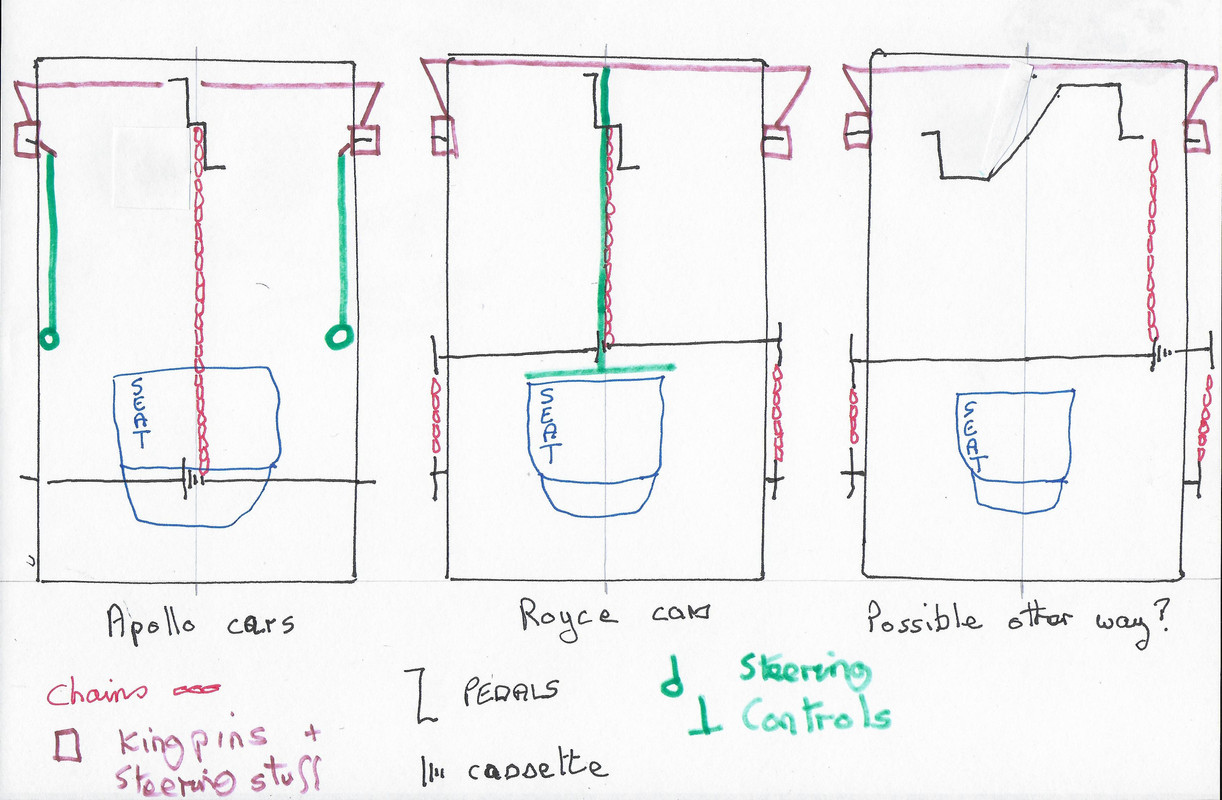 SEAT
SEAT
SEAT
Apollo cars
Royce cars
Possible other way?
Chains
Kingpins +
Steering stuff
PEDALS
cassette
Steering
Controls